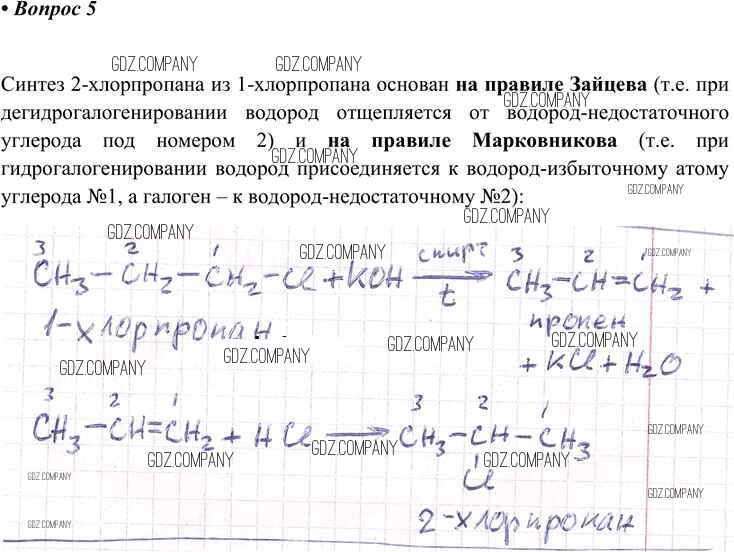 • Вопрос 5
GDZ.COMPANY GDZ.COMPANY
Синтез 2-хлорпропана из 1-хлорпропана основан на правиле Зайцева (т.е. при
GDZ.COMPANY
дегидрогалогенировании водород отщепляется от водород-недостаточного
углерода под номером 2) и на правиле Марковникова (т.е. при
GDZ.COMPANY
гидрогалогенировании водород присоединяется к водород-избыточному атому
GDZ.COMPANY
углерода №1, а галоген – к водород-недостаточному №2):
GDZ.COMPANY GDZ.COMPANY
3 2 1 спирт 3 2 1
GDZ.COMPANY GDZ.COMPANY
CH3 – CH2 – CH2 – Cl + KOH → CH3 – CH = CH2 +
t
1-хлорпропан пропен
GDZ.COMPANY GDZ.COMPANY GDZ.COMPANY
+ KCl + H2O
GDZ.COMPANY
3 2 1 3 2 1
CH3 – CH = CH2 + HCl → CH3 – CH – CH3
GDZ.COMPANY
GDZ.COMPANY GDZ.COMPANY GDZ.COMPANY
Cl
GDZ.COMPANY
GDZ.COMPANY
2-хлорпропан
GDZ.COMPANY GDZ.COMPANY